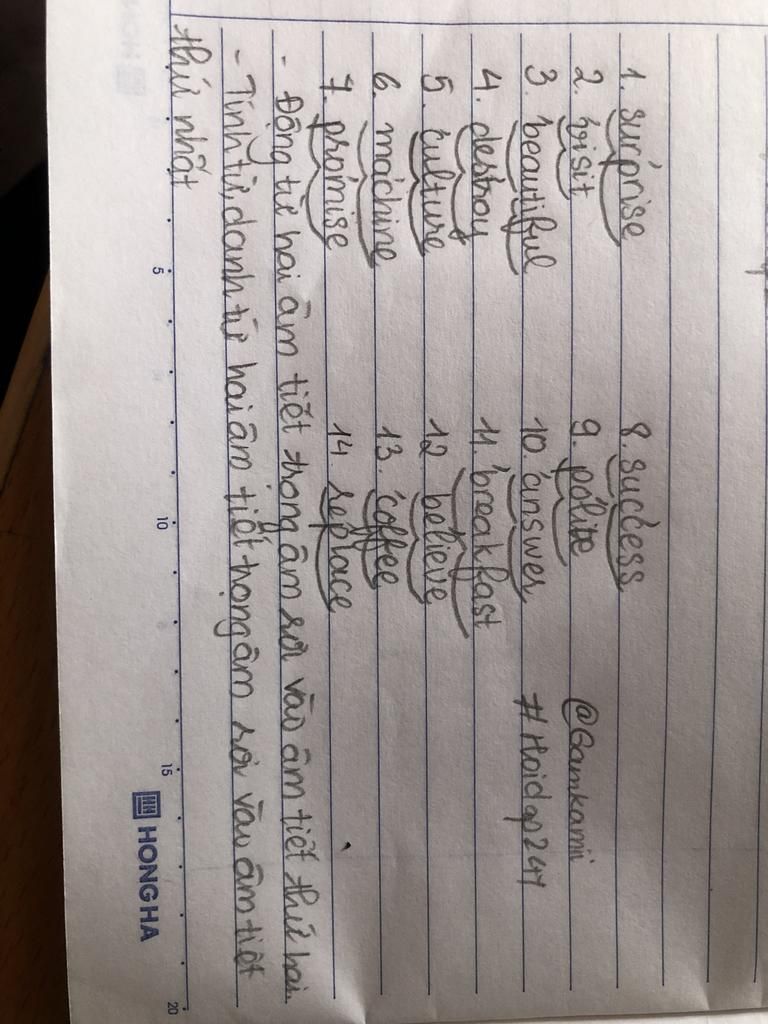 1. surprise 8. success
2. visit 9. polite @Gamkamii
3. beautiful 10. answer #Hoidap247
4. destroy 11. breakfast
5. culture 12 believe
6. machine 13. coffee
7. promise 14. replace
- Động từ hai âm tiết trọng âm rơi vào âm tiết thứ hai.
- Tính từ, danh từ hai âm tiết trọng âm rơi vào âm tiết
thứ nhất
5 10 15 20
HONG HA